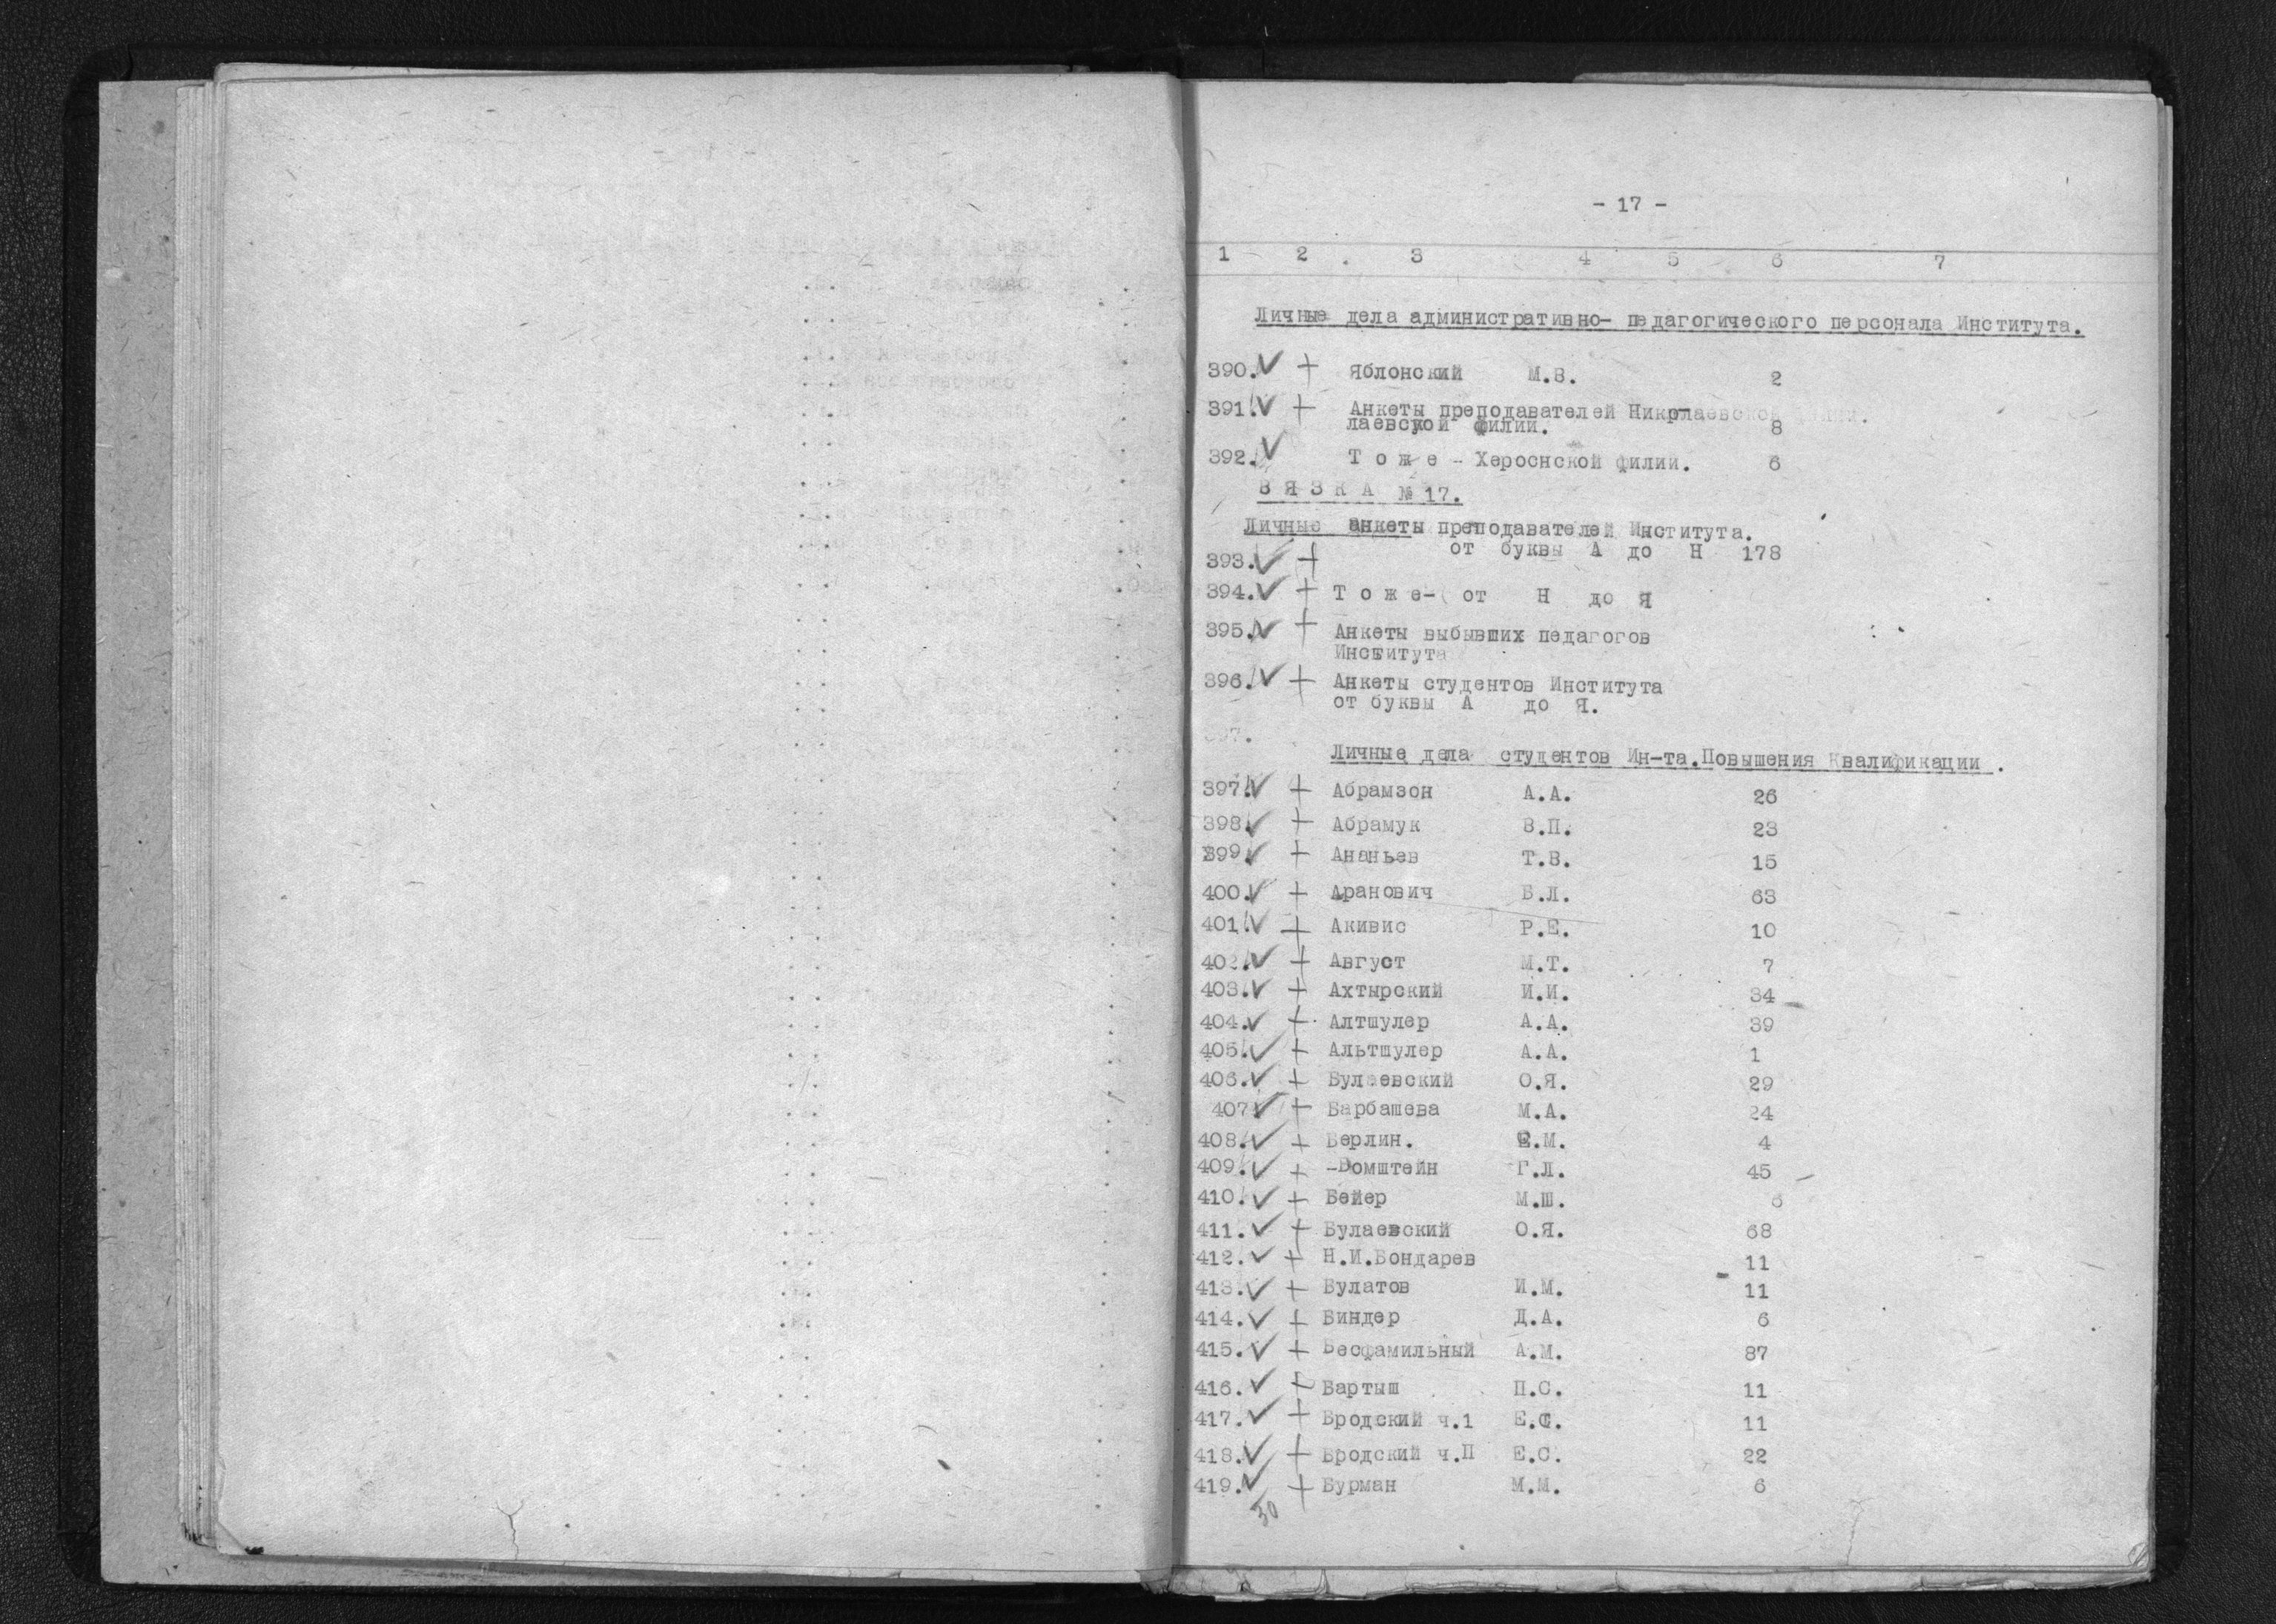 - 17 -
1 2 . 3 4 5 6 7
Личные дела административно- педагогического персонала Института.
390. ✓ + Яблонский М.В. 2
391. ✓ + Анкеты преподавателей Николаевской
лаевской филии. 8
392. ✓ Т о ж е - Хероснской филии. 6
В Я З К А № 17.
Личные анкеты преподавателей Института.
393. ✓ + от буквы А до Н 178
394. ✓ + Т о ж е- от Н до Я
395. ✓ + Анкеты выбывших педагогов
Института
396. ✓ + Анкеты студентов Института
от буквы А до Я.
397.
Личные дела студентов Ин-та.Повышения Квалификации .
397. ✓ + Абрамзон А.А. 26
398. ✓ + Абрамук В.П. 23
399. ✓ + Ананьев Т.В. 15
400. ✓ + Аранович Б.Л. 63
401. ✓ + Акивис Р.Е. 10
402. ✓ + Август М.Т. 7
403. ✓ + Ахтырский И.И. 34
404. ✓ + Алтшулер А.А. 39
405. ✓ + Альтшулер А.А. 1
406. ✓ + Булаевский О.Я. 29
407 ✓ + Барбашева М.А. 24
408. ✓ + Берлин. Е.М. 4
409. ✓ + -Бомштейн Г.Л. 45
410. ✓ + Бейер М.Ш. 6
411. ✓ + Булаевский О.Я. 68
412. ✓ + Н.И.Бондарев 11
413. ✓ + Булатов И.М. 11
414. ✓ + Биндер Д.А. 6
415. ✓ + Бесфамильный А.М. 87
416. ✓ + Бартыш П.С. 11
417. ✓ + Бродский ч.1 Е.С. 11
418. ✓ + Бродский ч.П Е.С. 22
419. ✓ + Бурман М.М. 6
30